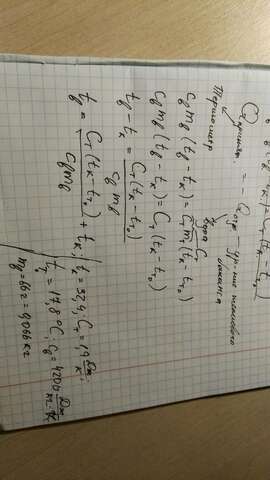 Qприним. = - Qотд. - ур-ние теплового баланса
Термометр
Вода
C_т
c_в m_в (t_в - t_к) = c_т m_т (t_к - t_т₀)
c_в m_в (t_в - t_к) = C_т (t_к - t_т₀)
t_в - t_к = C_т (t_к - t_т₀) / c_в m_в
t_в = C_т (t_к - t_т₀) / c_в m_в + t_к;
t_к = 32,4; C_т = 1,9 Дж/К;
t_т₀ = 17,8°C; c_в = 4200 Дж/кг·К
m_в = 66 г = 0,066 кг